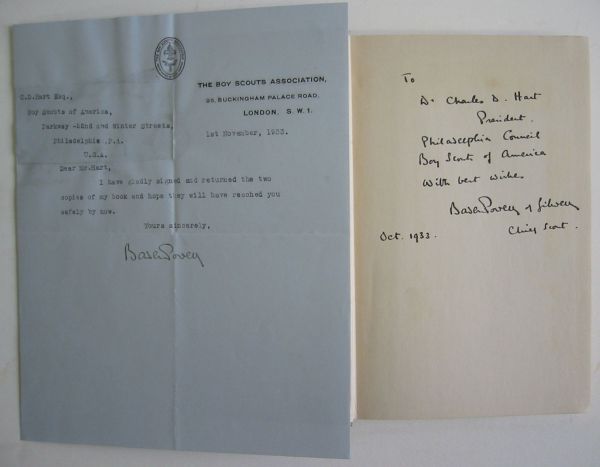 THE BOY SCOUTS ASSOCIATION,
25, BUCKINGHAM PALACE ROAD,
LONDON. S. W. 1.
1st November, 1933.
C.D.Hart Esq.,
Boy Scouts of America,
Parkway -22nd and Winter Streets,
Philadelphia .P.A.
U.S.A.
Dear Mr.Hart,
I have gladly signed and returned the two
copies of my book and hope they will have reached you
safely by now.
Yours sincerely,
Baden Powell
To
Dr Charles D. Hart
President.
Philadelphia Council
Boy Scouts of America
With best wishes
Baden Powell of Gilwell
Oct. 1933. Chief Scout.